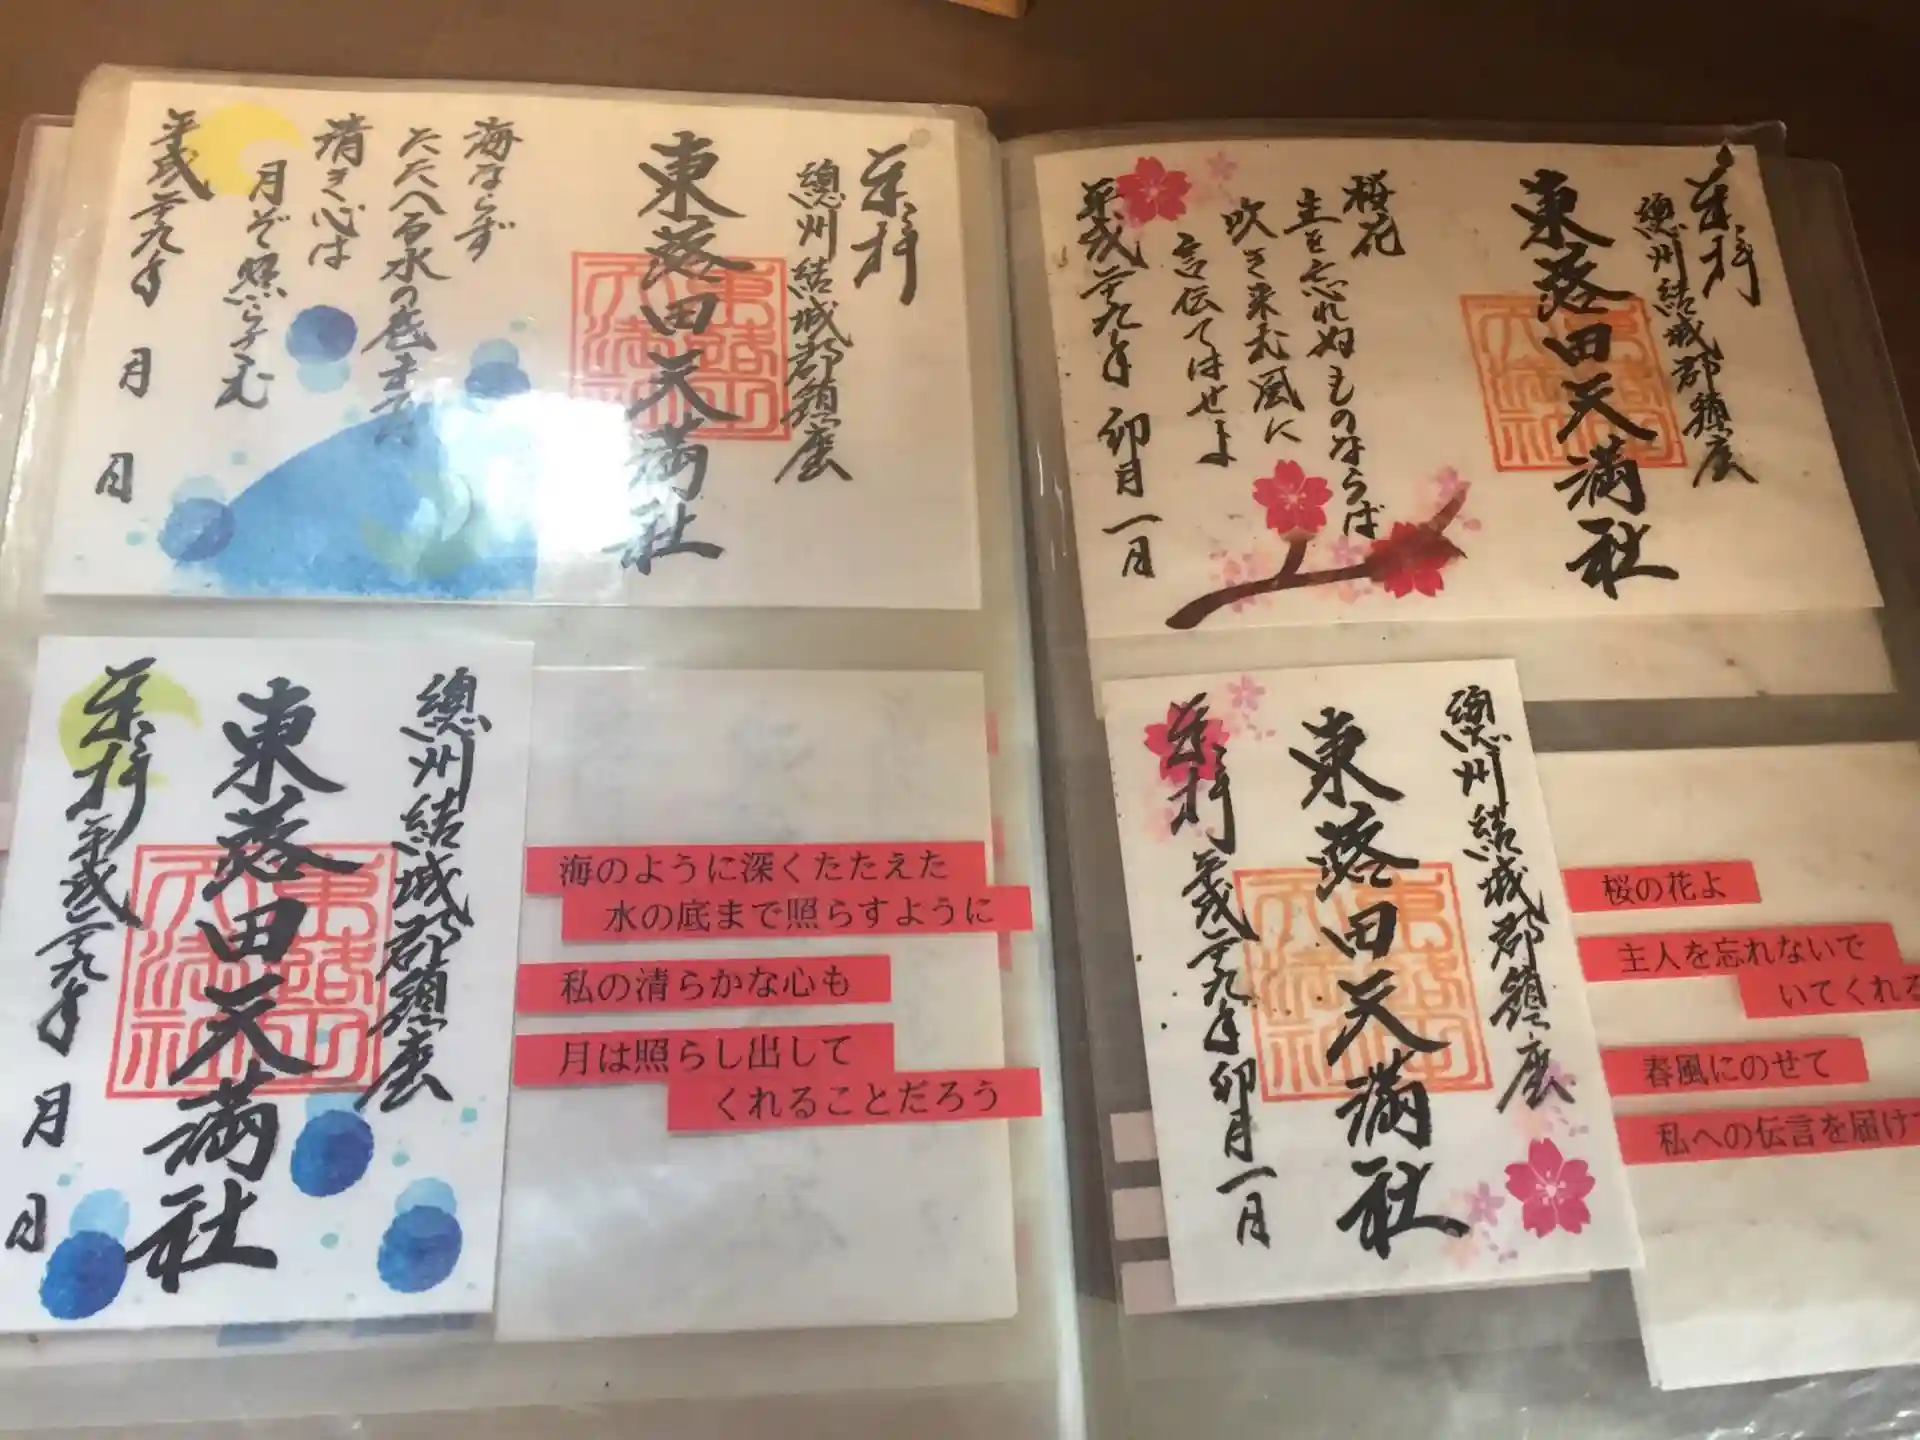 菅拝
總州結城郡鎮座
東蕗田天満社
海ならず
たたへる水の底まで
清き心は
月ぞ照らさむ
平成二十九年 月 日
總州結城郡鎮座
東蕗田天満社
平成二十九年 月 日
海のように深くたたえた
水の底まで照らすように
私の清らかな心も
月は照らし出して
くれることだろう
總州結城郡鎮座
東蕗田天満社
桜花
主を忘れぬものならば
吹き来む風に
言伝てはせよ
平成二十九年 卯月 一日
總州結城郡鎮座
東蕗田天満社
平成二十九年 卯月 一日
桜の花よ
主人を忘れないで
いてくれる
春風にのせて
私への伝言を届け